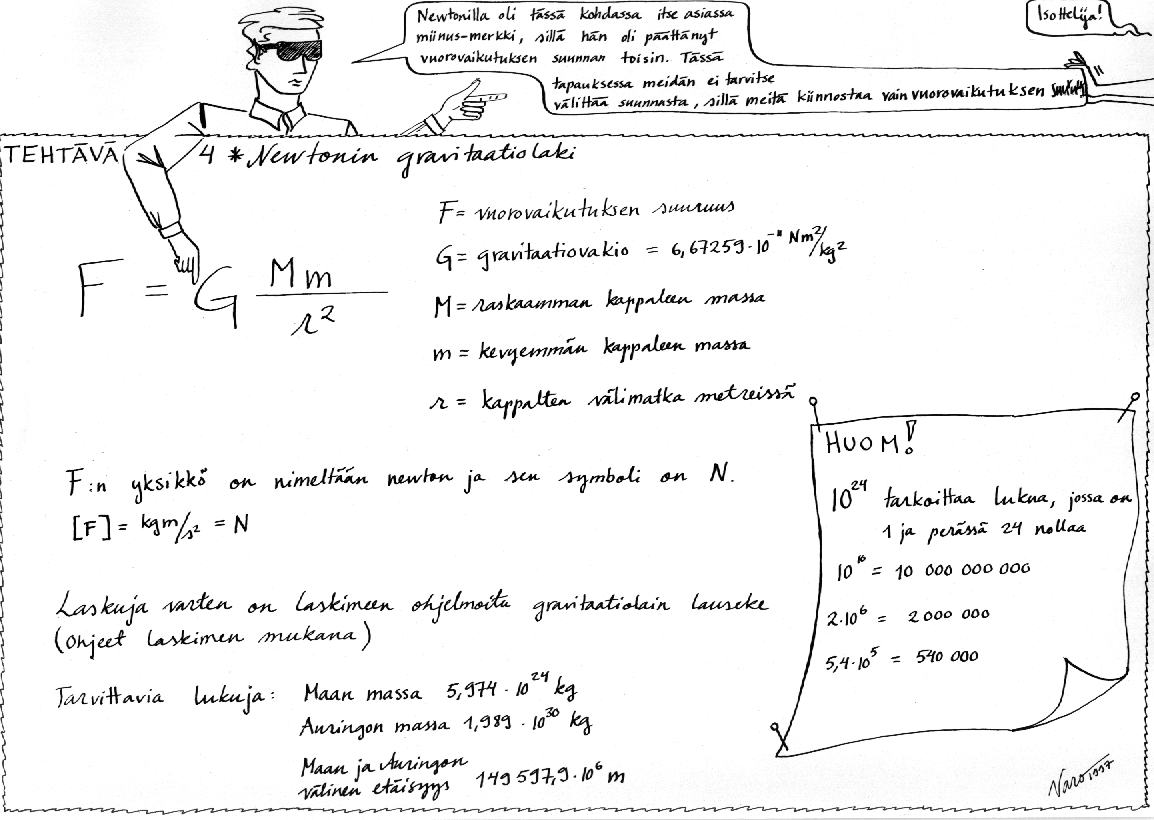 Newtonilla oli tässä kohdassa itse asiassa
miinus-merkki, sillä hän oli päättänyt
vuorovaikutuksen suunnan toisin. Tässä
tapauksessa meidän ei tarvitse
välittää suunnasta, sillä meitä kiinnostaa vain vuorovaikutuksen
Isottelija!
TEHTÄVÄ 4 * Newtonin gravitaatiolaki
F = G Mm / r²
F = vuorovaikutuksen suuruus
G = gravitaatiovakio = 6,67259·10⁻¹¹ Nm²/kg²
M = raskaamman kappaleen massa
m = kevyemmän kappaleen massa
r = kappalten välimatka metreissä
F:n yksikkö on nimeltään newton ja sen symboli on N.
[F] = kgm/s² = N
Laskuja varten on laskimeen ohjelmoitu gravitaatiolain lauseke
(Ohjeet laskimen mukana)
Tarvittavia lukuja: Maan massa 5,974 · 10²⁴ kg
Auringon massa 1,989 · 10³⁰ kg
Maan ja Auringon
välinen etäisyys 149 597,9 · 10⁶ m
HUOM!
10²⁴ tarkoittaa lukua, jossa on
1 ja perässä 24 nollaa
10¹⁰ = 10 000 000 000
2·10⁶ = 2 000 000
5,4·10⁵ = 540 000
Naro 1997